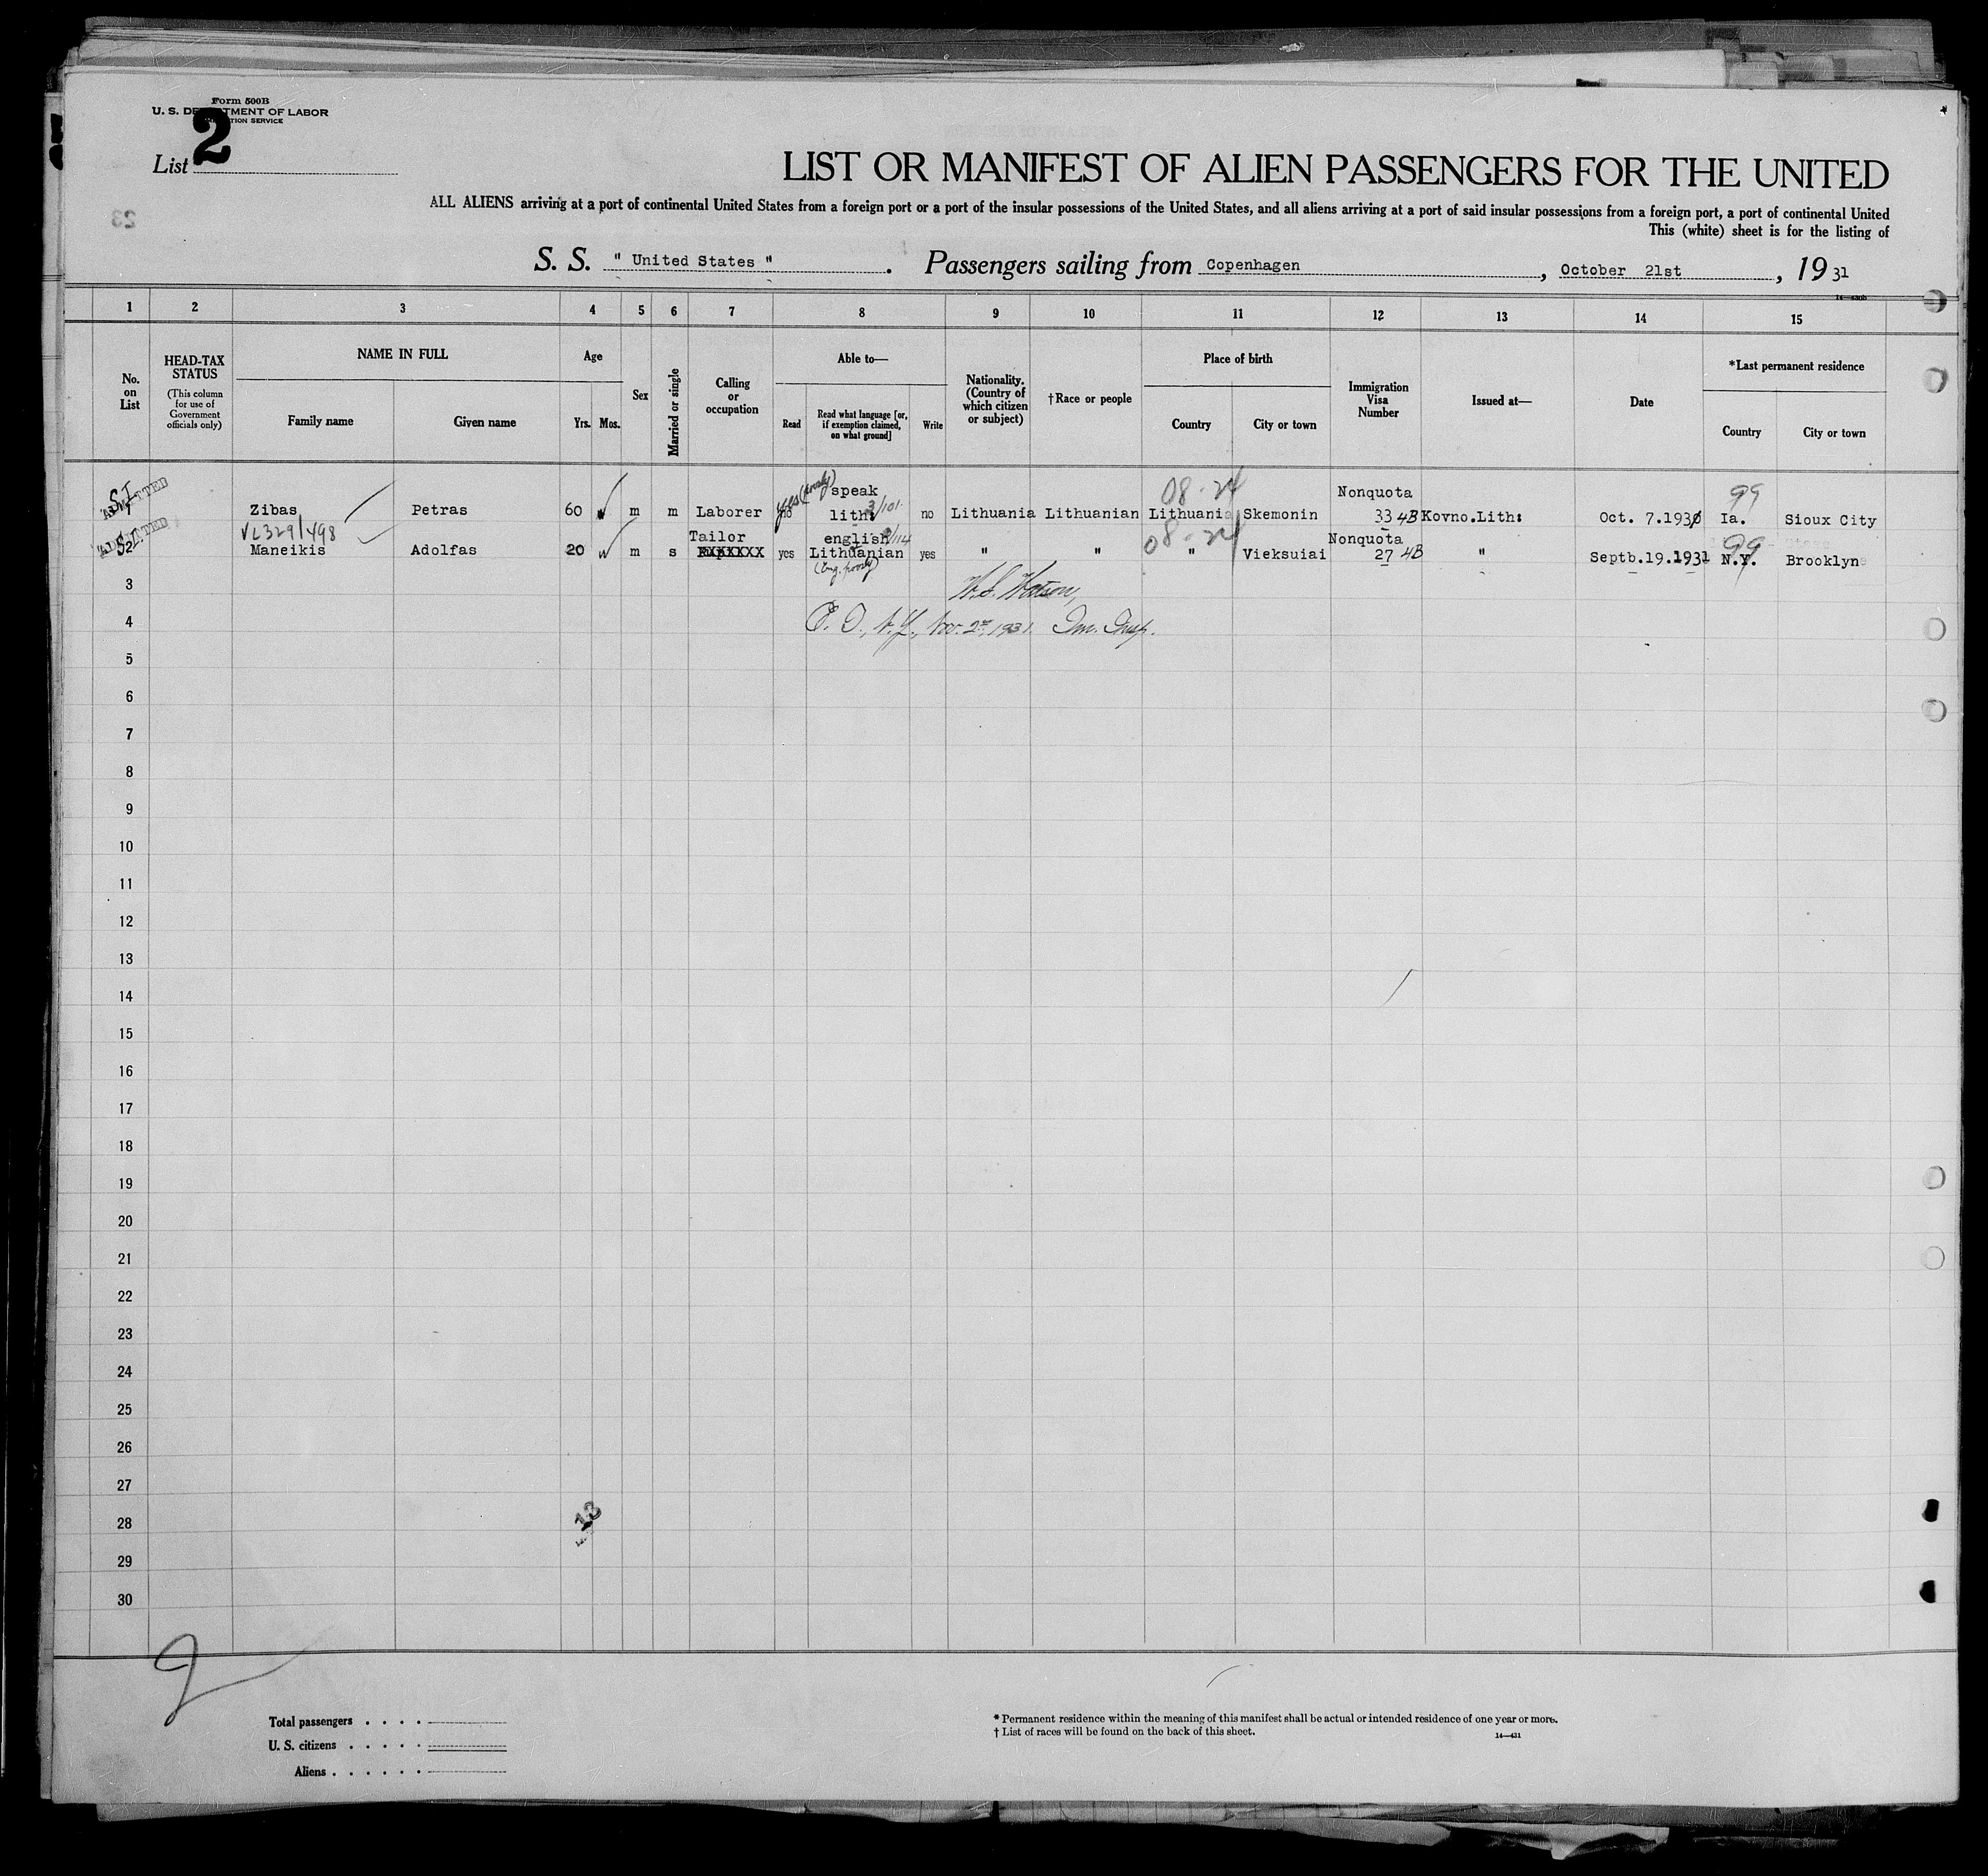 Form 500B
U. S. DEPARTMENT OF LABOR
List 2
23
LIST OR MANIFEST OF ALIEN PASSENGERS FOR THE UNITED
ALL ALIENS arriving at a port of continental United States from a foreign port or a port of the insular possessions of the United States, and all aliens arriving at a port of said insular possessions from a foreign port, a port of continental United
This (white) sheet is for the listing of
S. S. " United States " . Passengers sailing from Copenhagen , October 21st , 19 31
1 2 3 4 5 6 7 8 9 10 11 12 13 14 15
No. on List
HEAD-TAX STATUS
(This column for use of Government officials only)
NAME IN FULL
Family name Given name
Age
Yrs. Mos.
Sex
Married or single
Calling or occupation
Able to—
Read Read what language [or, if exemption claimed, on what ground] Write
Nationality. (Country of which citizen or subject)
†Race or people
Place of birth
Country City or town
Immigration Visa Number
Issued at—
Date
*Last permanent residence
Country City or town
S.I. ADMITTED yes (poorly) speak 3/101 08-24 Nonquota 99
Zibas Petras 60 m m Laborer no lith: no Lithuania Lithuanian Lithuania Skemonin 33 4B Kovno.Lith: Oct. 7.193 Ia. Sioux City
ADMITTED VL329/498 Tailor english /114 08-24 Nonquota 99
Maneikis Adolfas 20 m s yes Lithuanian yes " " " Vieksuiai 27 4B " Septb.19.1931 N.Y. Brooklyn
(Eng. poorly)
3 W.S. Watson,
4 E. I., N.Y., Nov. 2nd, 1931. Im. Insp.
5
6
7
8
9
10
11
12
13
14
15
16
17
18
19
20
21
22
23
24
25
26
27
28
29
30
13
2
Total passengers . . . .
U. S. citizens . . . . .
Aliens . . . . . .
* Permanent residence within the meaning of this manifest shall be actual or intended residence of one year or more.
† List of races will be found on the back of this sheet.
14—431